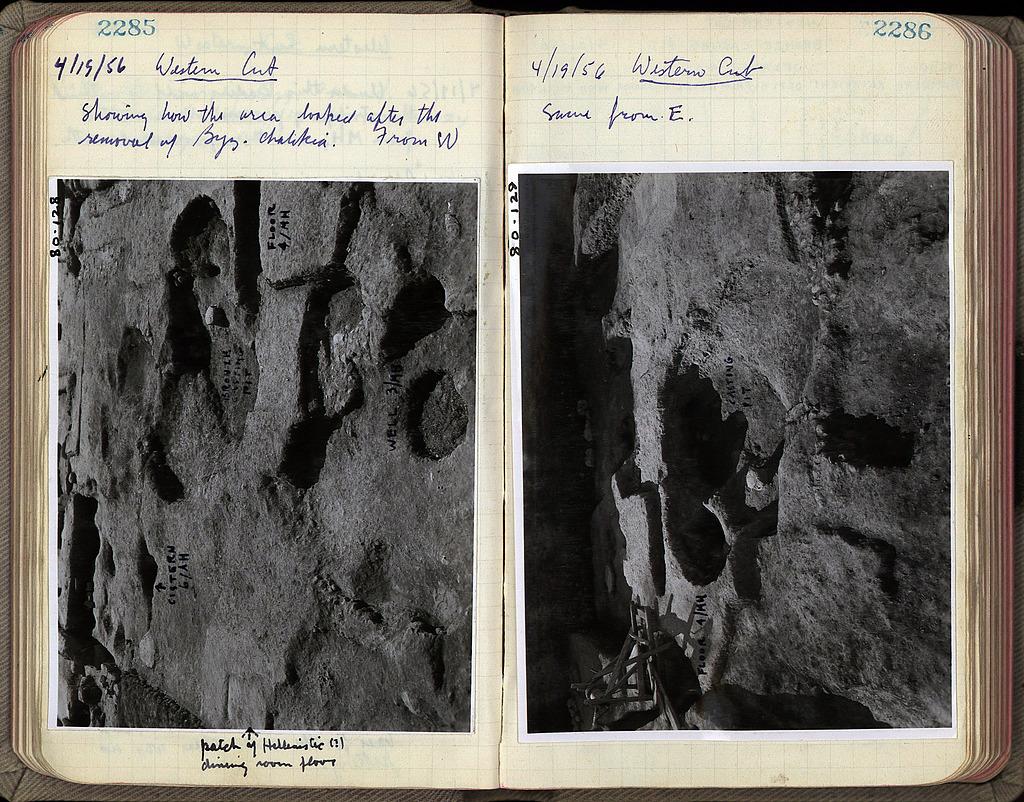 2285
4/19/56 Western Cut
Showing how the area looked after the
removal of Byz. chalikia. From W
80-128
FLOOR
4/MH
CASTING
PIT
WELL 3/MH
CISTERN
patch of Hellenistic (?)
dining room floor
2286
4/19/56 Western Cut
Same from E.
80-129
CASTING
PIT
FLOOR 4/MH